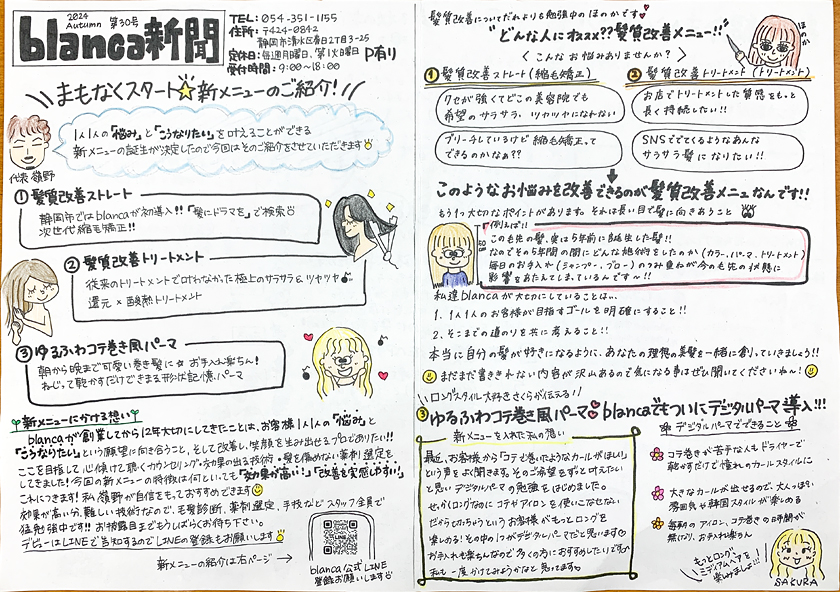 2024
Autumn 第30号
blanca新聞
TEL：054-351-1155
住所：〒424-0842
静岡市清水区春日2丁目3-25
定休日：毎週月曜日、第1火曜日
受付時間：9:00〜18:00
P有り
まもなくスタート☆新メニューのご紹介！
1人1人の「悩み」と「こうなりたい」を叶えることができる
新メニューの誕生が決定したので今回はそのご紹介をさせていただきます
代表 嶺野
①髪質改善ストレート
静岡市ではblancaが初導入!!「髪にドラマを」で検索
次世代縮毛矯正!!
②髪質改善トリートメント
従来のトリートメントで叶わなかった極上のサラサラ&ツヤツヤ♪
還元×酸熱トリートメント
③ゆるふわコテ巻き風パーマ
朝から晩まで可愛い巻き髪に☆お手入れ楽ちん！
ねじって乾かすだけできまる形状記憶パーマ
新メニューにかける想い
blancaが創業してから12年大切にしてきたことは、お客様1人1人の「悩み」と
「こうなりたい」という願望に向き合うこと、そして改善し、笑顔を生み出せるプロでありたい!!
ここを目指して心傾けて聴くカウンセリング・効果の出る技術・髪を傷めない薬剤選定を
してきました！今回の新メニューの特徴は何といっても「効果が高い！」「改善を実感しやすい」
これにつきます！私嶺野が自信をもっておすすめできます
効果が高い分、難しい技術なので、毛髪診断、薬剤選定、手技などスタッフ全員で
猛勉強中です!!お披露目までもうしばらくお待ち下さい。
デビューはLINEで告知するのでLINEの登録もお願いします
新メニューの紹介は右ページ→
blanca公式LINE
登録お願いします
髪質改善についてだれよりも勉強中のほのかです
"どんな人にオススメ??髪質改善メニュー!!"
ほのか
＜こんなお悩みありませんか？＞
①髪質改善ストレート（縮毛矯正）
クセが強くてどこの美容院でも
希望のサラサラ、ツヤツヤになれない
ブリーチしているけど縮毛矯正って
できるのかなぁ??
②髪質改善トリートメント（トリートメント）
お店でトリートメントした質感をもっと
長く持続したい!!
SNSででてくるようなあんな
サラサラ髪になりたい!!
このようなお悩みを改善できるのが髪質改善メニューなんです!!
もう1つ大切なポイントがあります。それは長い目で髪に向きあうこと
例えば!!
この毛先の髪、実は5年前に誕生した髪!!
なのでその5年間の間にどんな施術をしたのか（カラー、パーマ、トリートメント）
毎日のお手入れ（シャンプー、ブロー）のつみ重ねが今の毛先の状態に
影響をあたえてしまっているんです〜!!
私達blancaが大切にしていることは…
1. 1人1人のお客様が目指すゴールを明確にすること!!
2. そこまでの道のりを共に考えること!!
本当に自分の髪が好きになるように、あなたの理想の美髪を一緒に創っていきましょう!!
まだまだ書ききれない内容が沢山あるので気になる事はぜひ聞いてくださいね〜！
ロングスタイル大好きさくらが伝える！
③ゆるふわコテ巻き風パーマ♥blancaでもついにデジタルパーマ導入!!!
新メニューを入れた私の想い
最近、お客様から「コテで巻いたようなカールがほしい」
という声をよく聞きます。そのご希望をずっと叶えたい
と思いデジタルパーマの勉強をはじめました。
せっかくロングなのにコテやアイロンを使いこなせない
だから切っちゃうというお客様がもっとロングを
楽しめる！その中の1つがデジタルパーマだと思います♡
お手入れも楽ちんなので多くの方におすすめしたいです
私も一度かけてみようかなと思ってます
デジタルパーマでできること
コテ巻きが苦手な人もドライヤーで
乾かすだけで憧れのカールスタイルに
大きなカールが出せるので、大人っぽい
雰囲気や韓国スタイルが楽しめる
毎朝のアイロン、コテ巻きの時間が
無くなり、お手入れ楽ちん
もっとロング、
ミディアムヘアを
楽しみましょ!!
SAKURA